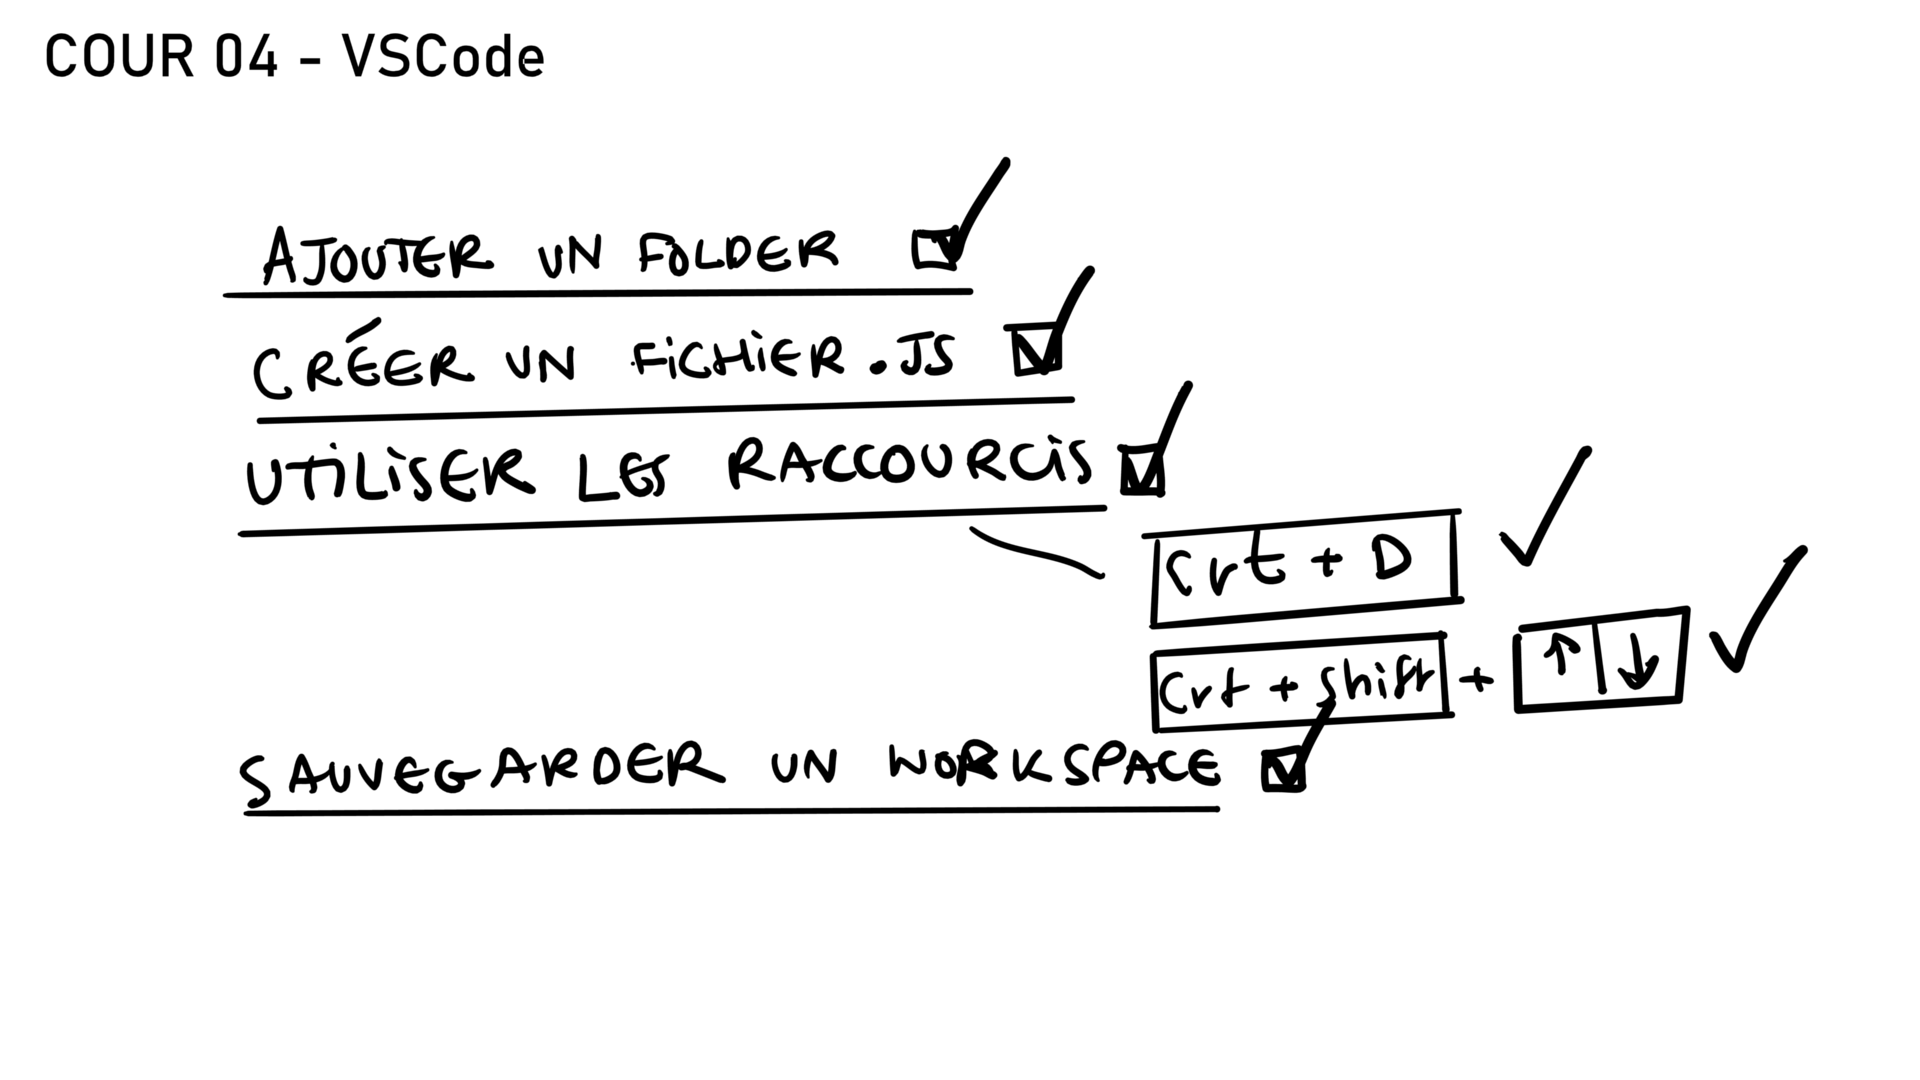 COUR 04 - VSCode
AJOUTER UN FOLDER
CRÉER UN FiCHiER .JS
UTiLiSER LES RACCOURCiS
Crt + D
Crt + Shift + ↑ ↓
SAUVEGARDER UN WORKSPACE